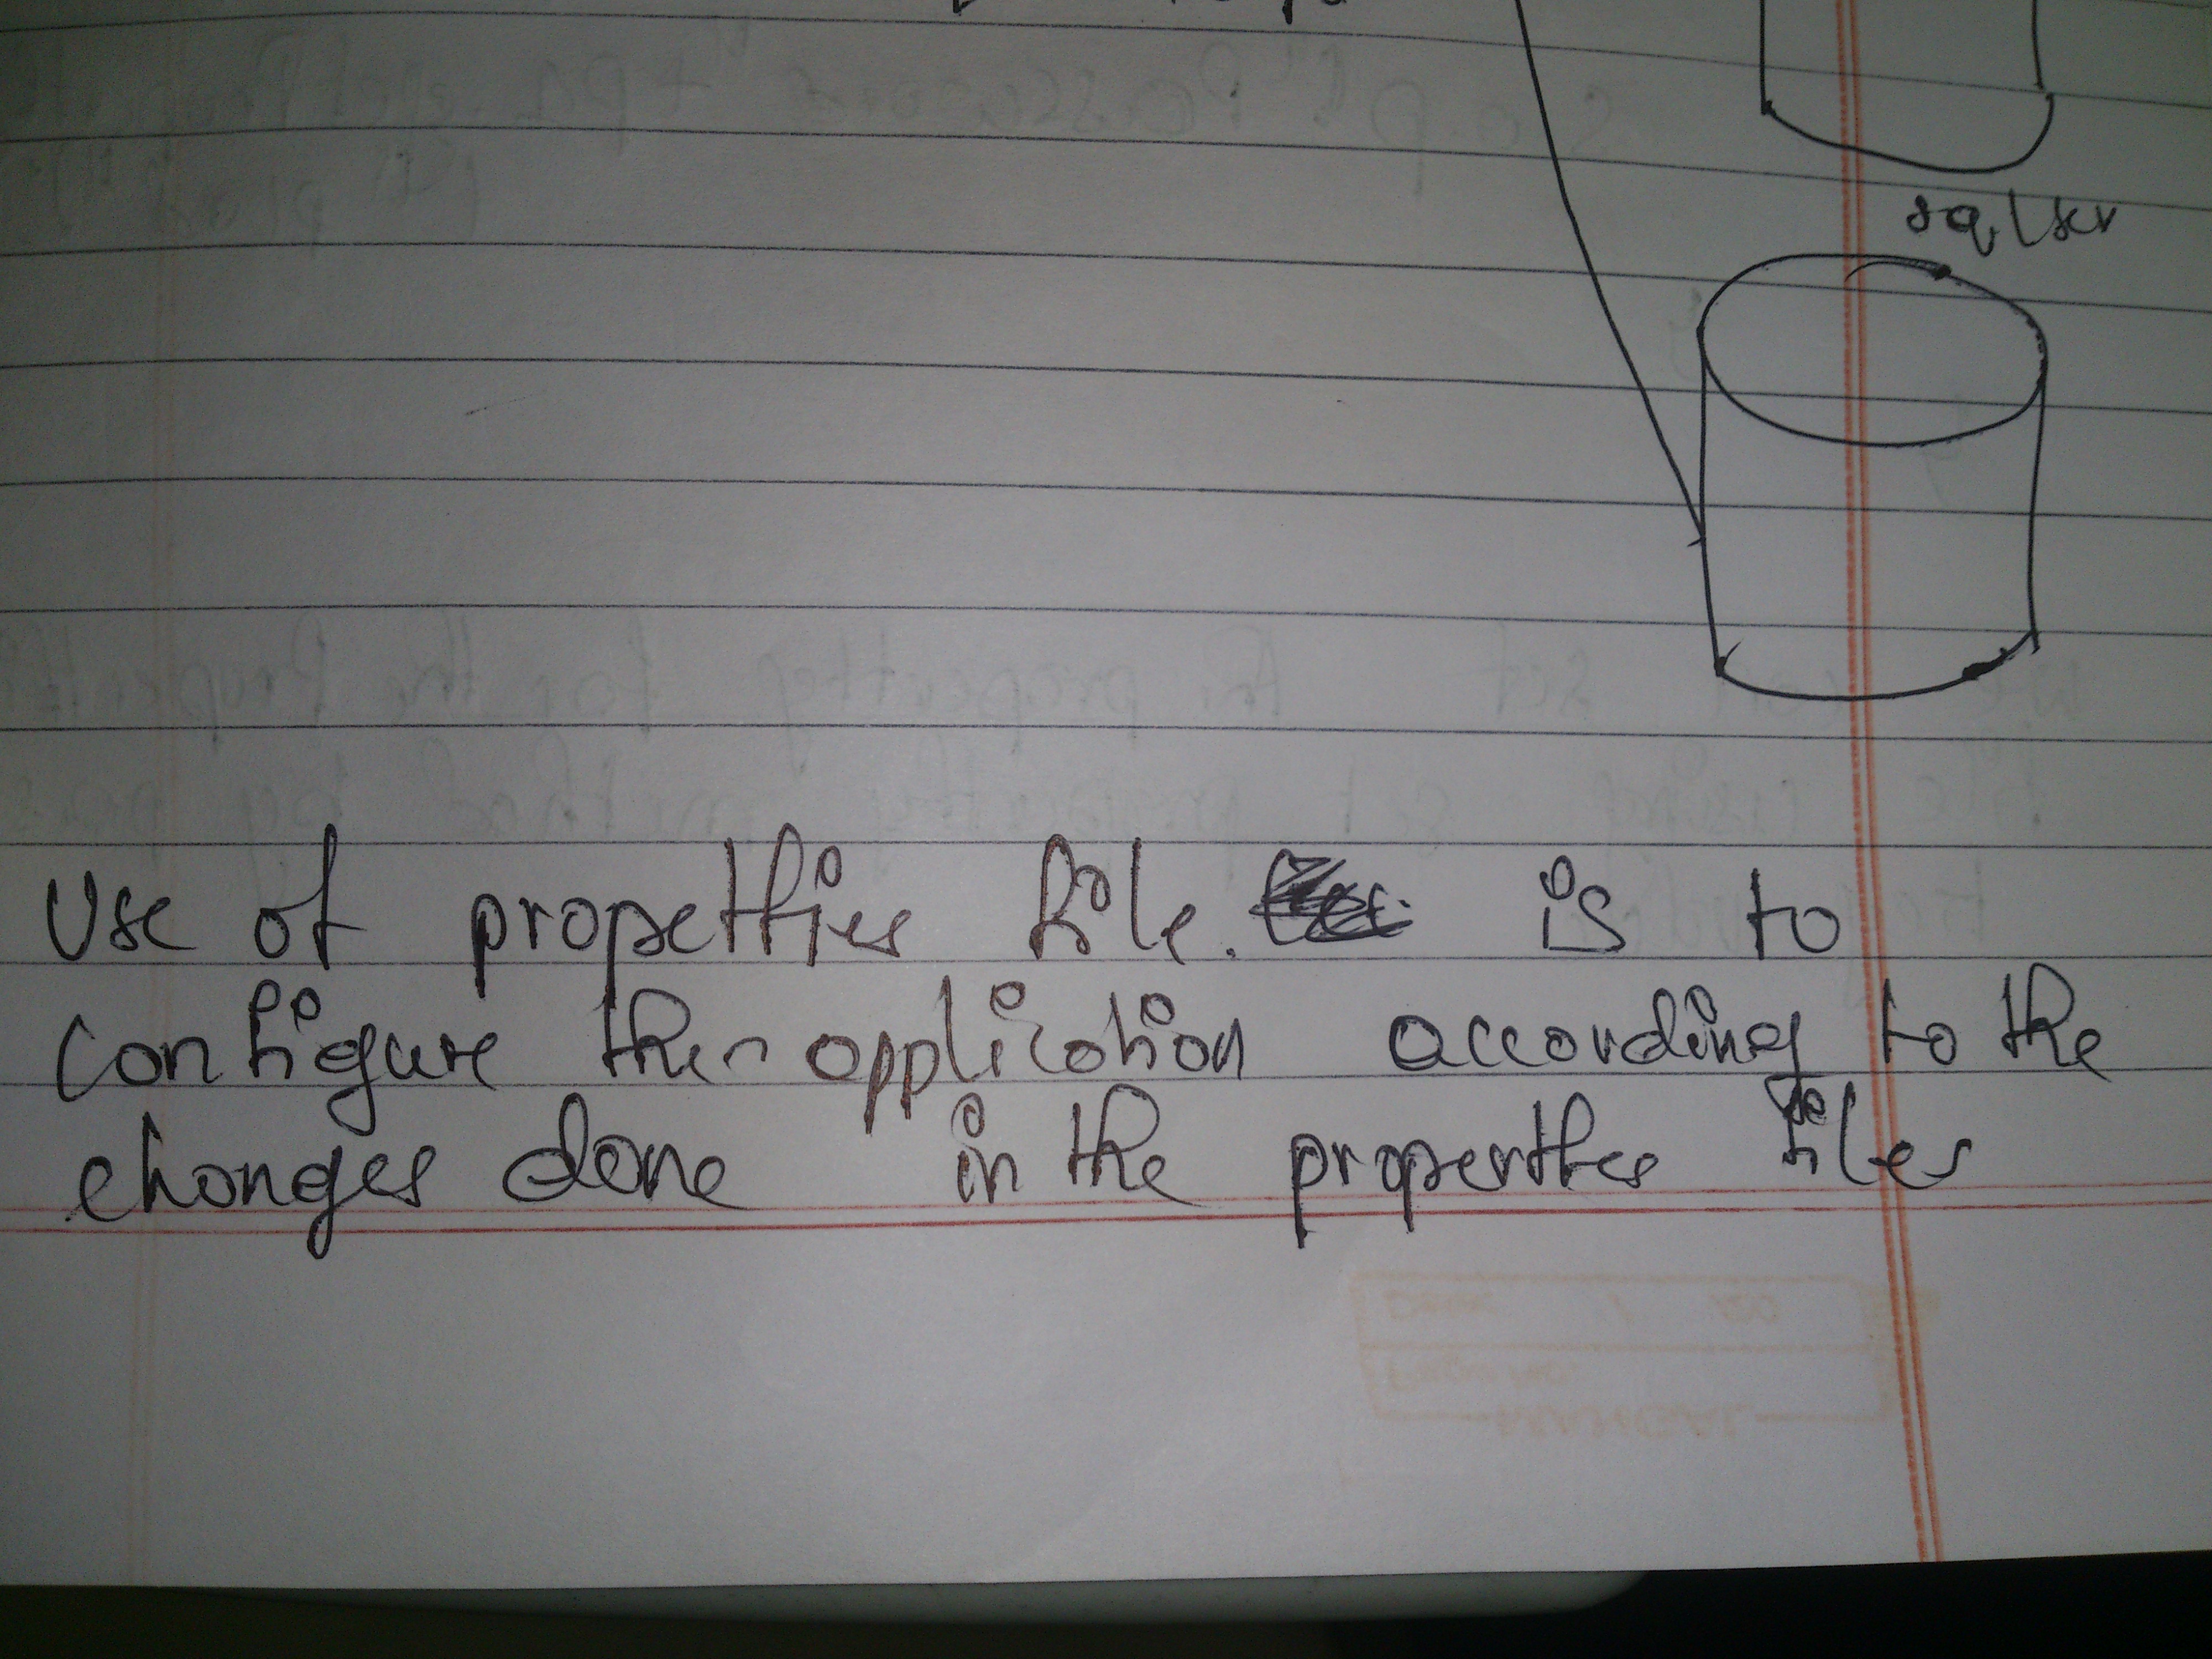 sqlser
Use of propetties file. is to
configure the application according to the
changes done in the properties files